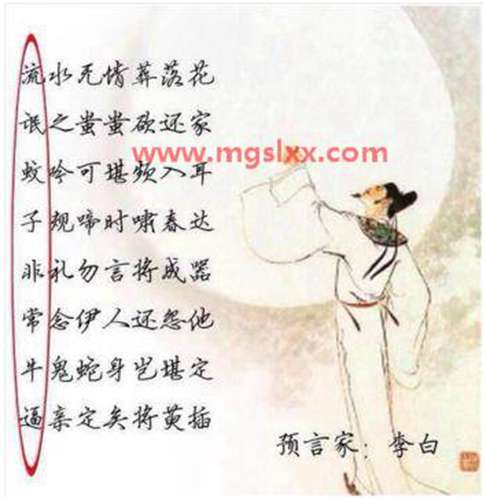 流水无情葬落花
氓之蚩蚩欲还家
www.mgslxx.com
蛟吟可堪频入耳
子规啼时啸春达
非礼勿言将成器
常念伊人还怨他
牛鬼蛇身岂堪定
逼亲定矣将萸插
预言家：李白